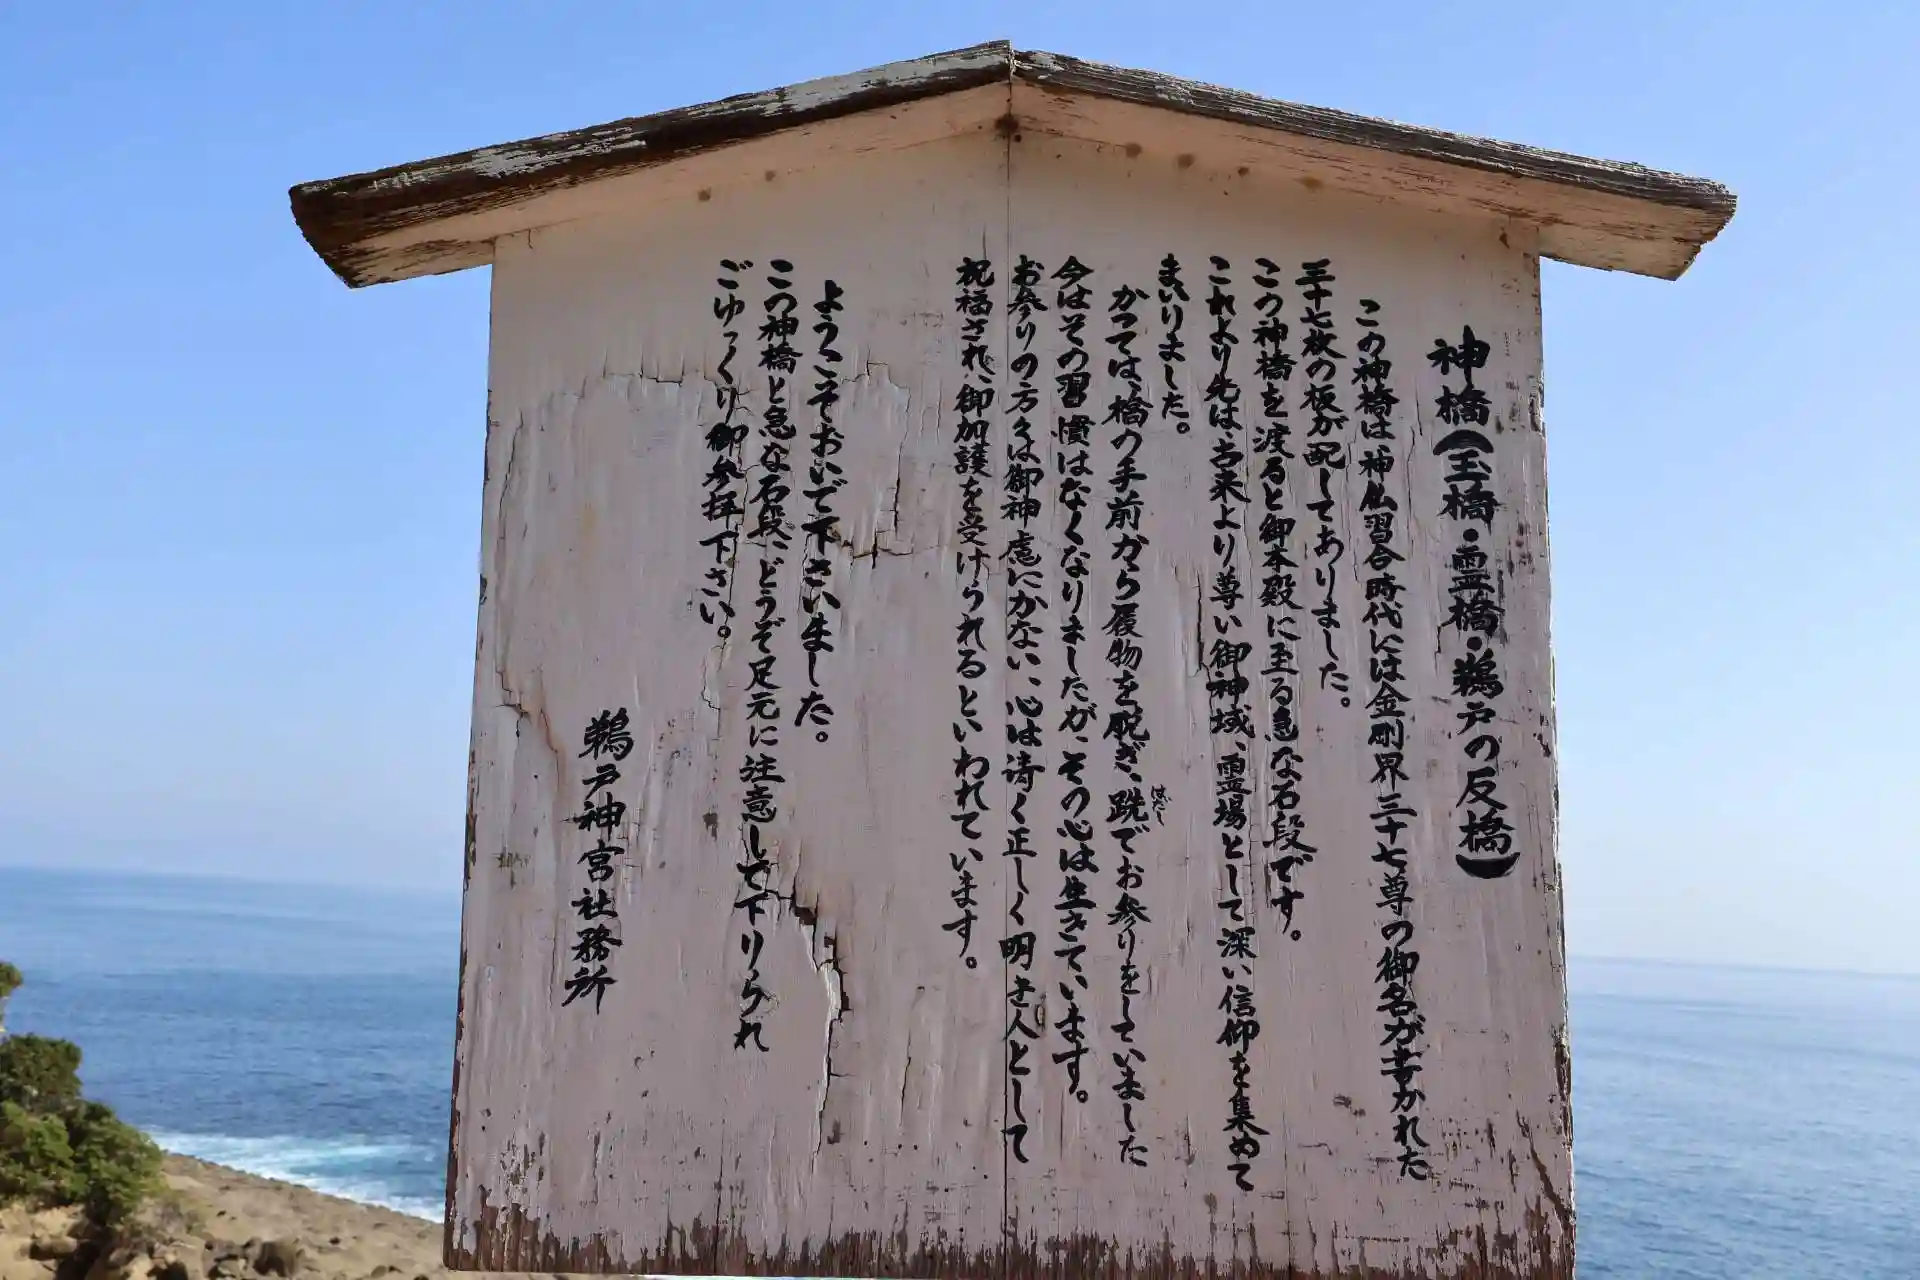 神橋（玉橋・霊橋・鵜戸の反橋）
この神橋は神仏習合時代には金剛界三十七尊の御名が書かれた
三十七枚の板が配してありました。
この神橋を渡ると御本殿に至る急な石段です。
これより先は、古来より尊い御神域、霊場として深い信仰を集めて
まいりました。
かつては、橋の手前から履物を脱ぎ、跣でお参りをしていました
はだし
今はその習慣はなくなりましたが、その心は生きています。
お参りの方々は御神慮にかない、心は清く正しく明き人として
祝福され、御加護を受けられるといわれています。
ようこそおいで下さいました。
この神橋と急な石段、どうぞ足元に注意して下りられ
ごゆっくり御参拝下さい。
鵜戸神宮社務所